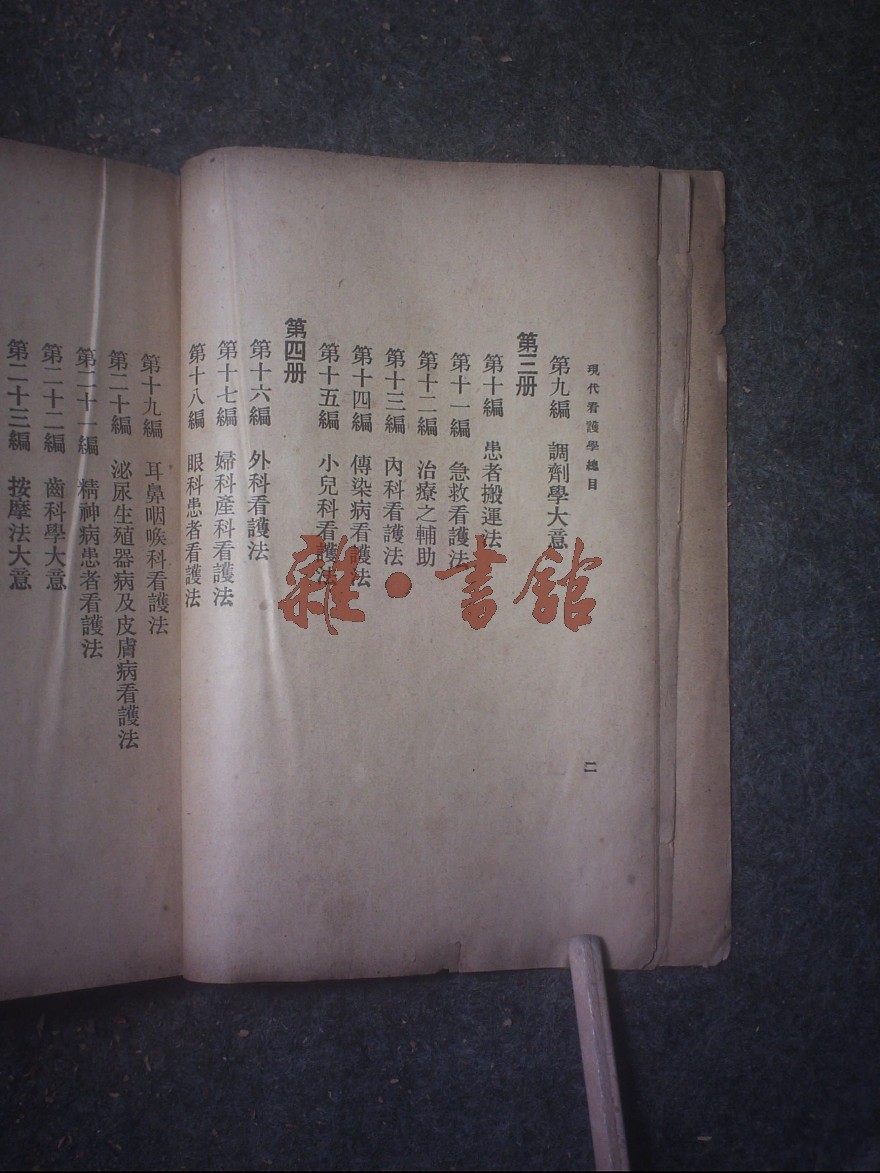 現代看護學總目
二
第九編 調劑學大意
第三册
第十編 患者搬運法
第十一編 急救看護法
第十二編 治療之輔助
第十三編 內科看護法
第十四編 傳染病看護法
第十五編 小兒科看護法
第四册
第十六編 外科看護法
第十七編 婦科產科看護法
第十八編 眼科患者看護法
第十九編 耳鼻咽喉科看護法
第二十編 泌尿生殖器病及皮膚病看護法
第二十一編 精神病患者看護法
第二十二編 齒科學大意
第二十三編 按摩法大意
雜·書館